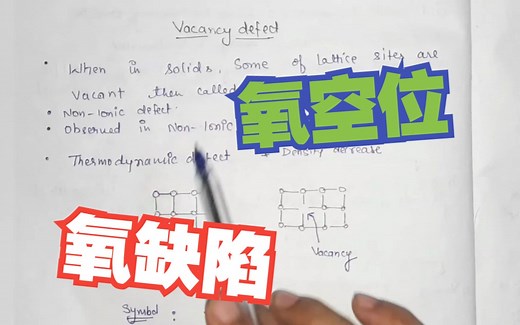 Vacancy defect
• When in solids, Some of lattice sites are
Vacant then called
氧空位
• Non-Ionic defect.
• Observed in Non-Ionic
• Thermodynamic defect
Density decrease
氧缺陷
Vacancy
Symbol :